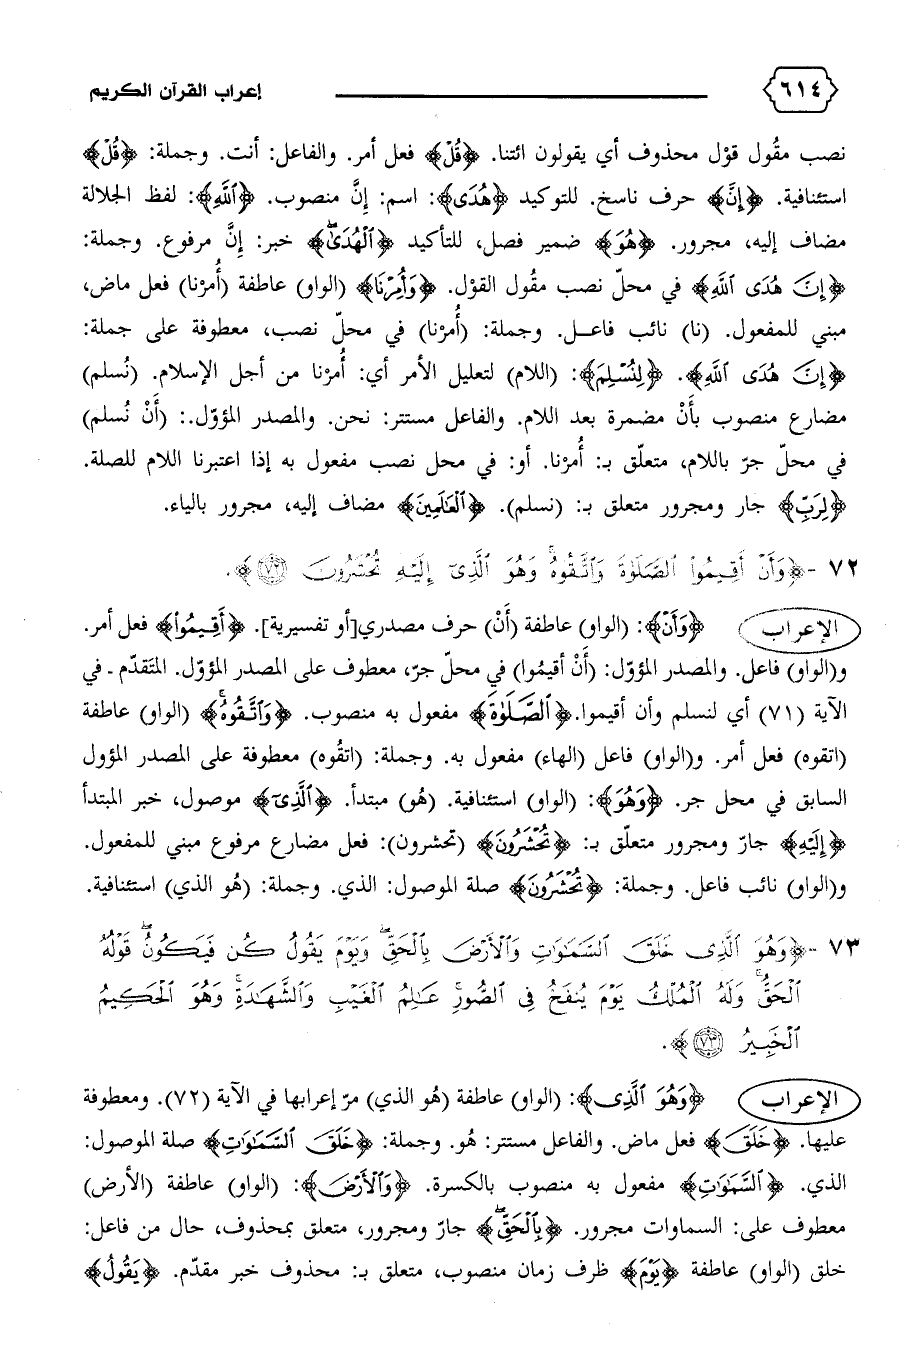 ٦١٤ إعراب القرآن الكريم
نصب مقُول قوْل محذوف أي يقولون ائتنا. ﴿قُلْ﴾ فعل أمر. والفاعل: أنت. وجملة: ﴿قُلْ﴾
استئنافية. ﴿إِنَّ﴾ حرف ناسخ. للتوكيد ﴿هُدَى﴾: اسم: إنَّ منصوب. ﴿اللَّهِ﴾: لفظ الجلالة
مضاف إليه، مجرور. ﴿هُوَ﴾ ضمير فصل، للتأكيد ﴿الْهُدَىٰ﴾ خبر: إنَّ مرفوع. وجملة:
﴿إِنَّ هُدَى اللَّهِ﴾ في محلّ نصب مقُول القوْل. ﴿وَأُمِرْنَا﴾ (الواو) عاطفة (أُمرْنا) فعل ماض،
مبني للمفعول. (نا) نائب فاعل. وجملة: (أُمرْنا) في محلّ نصب، معطوفة على جملة:
﴿إِنَّ هُدَى اللَّهِ﴾. ﴿لِنُسْلِمَ﴾: (اللام) لتعليل الأمر أي: أُمرْنا من أجل الإسلام. (نُسلم)
مضارع منصوب بأنْ مضمرة بعد اللام. والفاعل مستتر: نحن. والمصدر المؤوّل.: (أنْ نُسلم)
في محلّ جرّ باللام، متعلّق بـ: أُمرْنا. أو: في محل نصب مفعول به إذا اعتبرنا اللام للصلة.
﴿لِرَبِّ﴾ جار ومجرور متعلق بـ: (نسلم). ﴿الْعَالَمِينَ﴾ مضاف إليه، مجرور بالياء.
٧٢ - ﴿وَأَنْ أَقِيمُوا الصَّلَوٰةَ وَاتَّقُوهُ ۚ وَهُوَ الَّذِي إِلَيْهِ تُحْشَرُونَ ٧٢﴾.
الإعراب ﴿وَأَنْ﴾: (الواو) عاطفة (أَنْ) حرف مصدري[أو تفسيرية]. ﴿أَقِيمُوا﴾ فعل أمر.
و(الواو) فاعل. والمصدر المؤوْل: (أنْ أقيمُوا) في محلّ جرّ، معطوف على المصدر المؤوّل. المتَقدّم ـ في
الآية (٧١) أي لنسلم وأن أقيموا. ﴿الصَّلَوٰةَ﴾ مفعول به منصوب. ﴿وَاتَّقُوهُ ۚ﴾ (الواو) عاطفة
(اتقوه) فعل أمر. و(الواو) فاعل (الهاء) مفعول به. وجملة: (اتقُوه) معطوفة على المصدر المؤول
السابق في محل جر. ﴿وَهُوَ﴾: (الواو) استئنافية. (هُو) مبتدأ. ﴿الَّذِي﴾ موصول، خبر المبتدأ
﴿إِلَيْهِ﴾ جارّ ومجرور متعلّق بـ: ﴿تُحْشَرُونَ﴾ (تحشرون): فعل مضارع مرفوع مبني للمفعول.
و(الواو) نائب فاعل. وجملة: ﴿تُحْشَرُونَ﴾ صلة الموصول: الذي. وجملة: (هُو الذي) استئنافية.
٧٣ - ﴿وَهُوَ الَّذِي خَلَقَ السَّمَوَٰتِ وَالْأَرْضَ بِالْحَقِّ ۖ وَيَوْمَ يَقُولُ كُن فَيَكُونُ ۖ قَوْلُهُ
الْحَقُّ ۚ وَلَهُ الْمُلْكُ يَوْمَ يُنفَخُ فِي الصُّورِ ۚ عَالِمُ الْغَيْبِ وَالشَّهَادَةِ ۚ وَهُوَ الْحَكِيمُ
الْخَبِيرُ ٧٣﴾.
الإعراب ﴿وَهُوَ الَّذِي﴾: (الواو) عاطفة (هُو الذي) مرّ إعرابها في الآية (٧٢). ومعطوفة
عليها. ﴿خَلَقَ﴾ فعل ماض. والفاعل مستتر: هُو. وجملة: ﴿خَلَقَ السَّمَوَٰتِ﴾ صلة الموصول:
الذي. ﴿السَّمَوَٰتِ﴾ مفعول به منصوب بالكسرة. ﴿وَالْأَرْضَ﴾: (الواو) عاطفة (الأرض)
معطوف على: السماوات مجرور. ﴿بِالْحَقِّ ۖ﴾ جارّ ومجرور، متعلق بمحذوف، حال من فاعل:
خلق (الواو) عاطفة ﴿يَوْمَ﴾ ظرف زمان منصوب، متعلق بـ: محذوف خبر مقدّم. ﴿يَقُولُ﴾